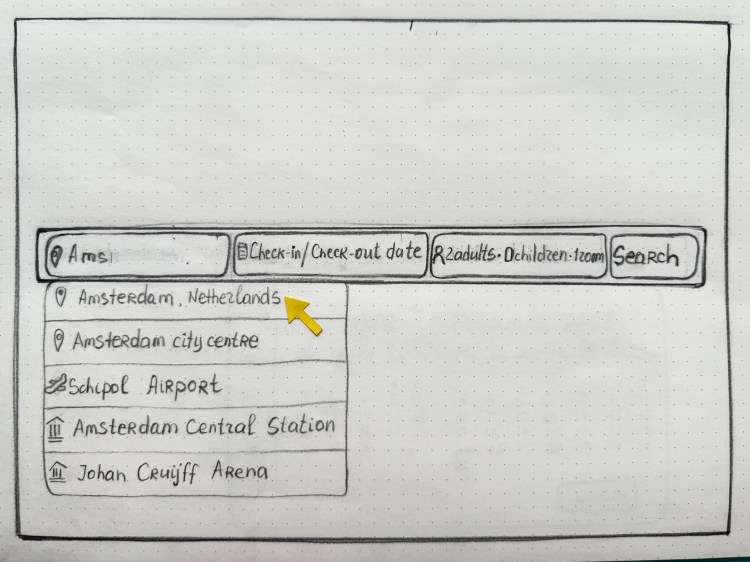 Ams
Check-in/Check-out date
2adults · 0children · 1room
Search
Amsterdam, Netherlands
Amsterdam city centre
Schipol Airport
Amsterdam Central Station
Johan Cruijff Arena